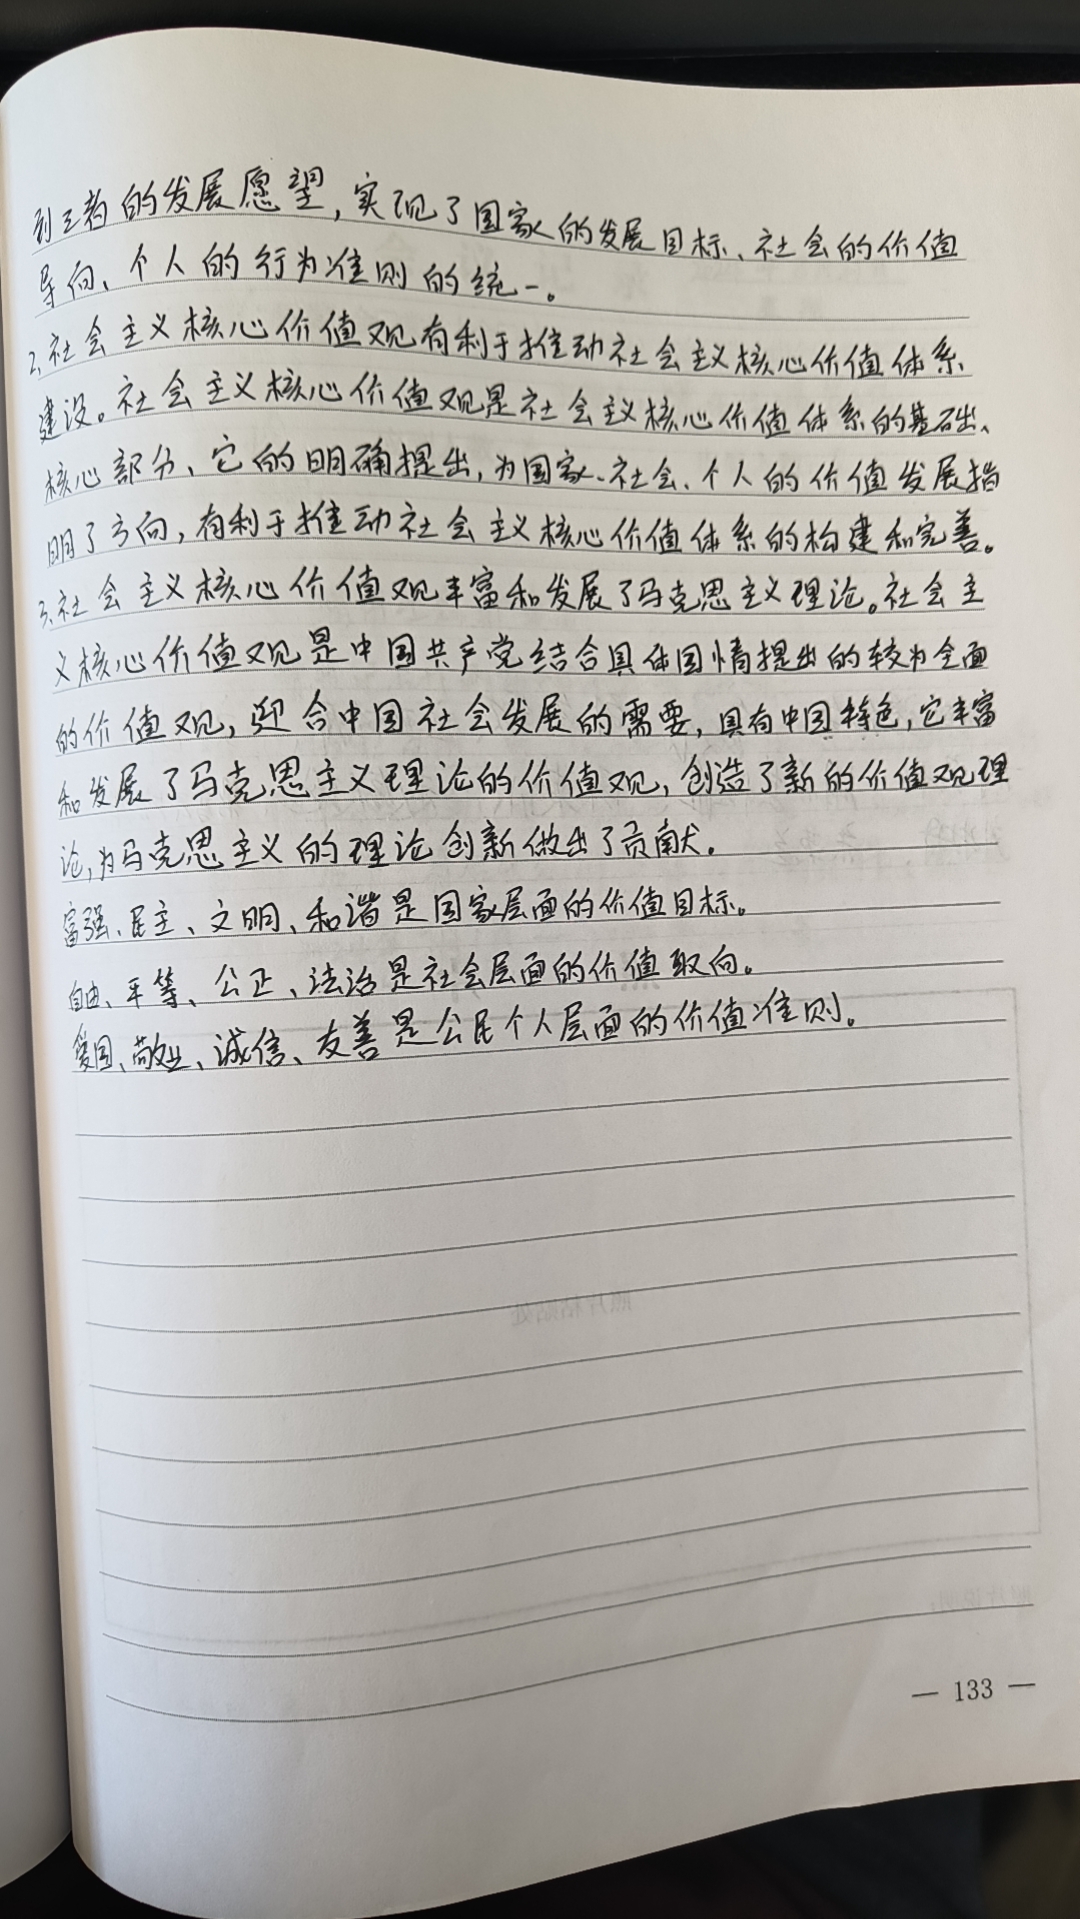 到三者的发展愿望，实现了国家的发展目标、社会的价值
导向、个人的行为准则的统一。
2.社会主义核心价值观有利于推动社会主义核心价值体系
建设。社会主义核心价值观是社会主义核心价值体系的基础、
核心部分、它的明确提出，为国家、社会、个人的价值发展指
明了方向，有利于推动社会主义核心价值体系的构建和完善。
3.社会主义核心价值观丰富和发展了马克思主义理论。社会主
义核心价值观是中国共产党结合具体国情提出的较为全面
的价值观，迎合中国社会发展的需要，具有中国特色，它丰富
和发展了马克思主义理论的价值观，创造了新的价值观理
论，为马克思主义的理论创新做出了贡献。
富强、民主、文明、和谐是国家层面的价值目标。
自由、平等、公正、法治是社会层面的价值取向。
爱国、敬业、诚信、友善是公民个人层面的价值准则。
照片粘贴处
照片说明：
— 133 —